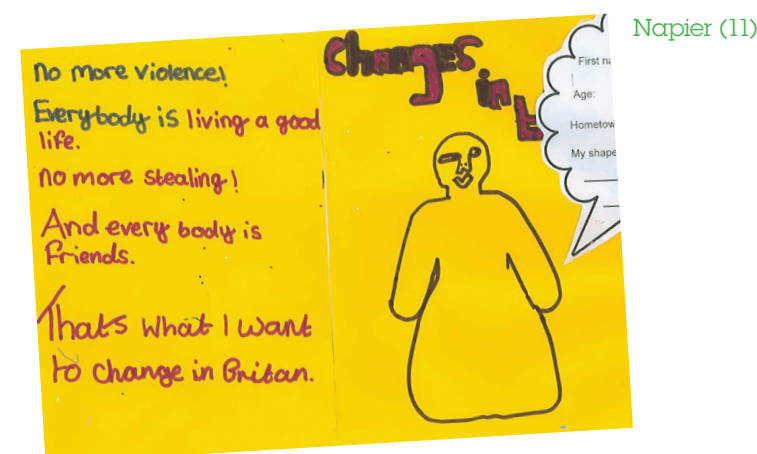 Napier (11)
No more violence!
Everybody is living a good
life.
No more stealing!
And every body is
friends.
Thats what I want
to change in Britan.
Changes
in
First
Age:
My shape